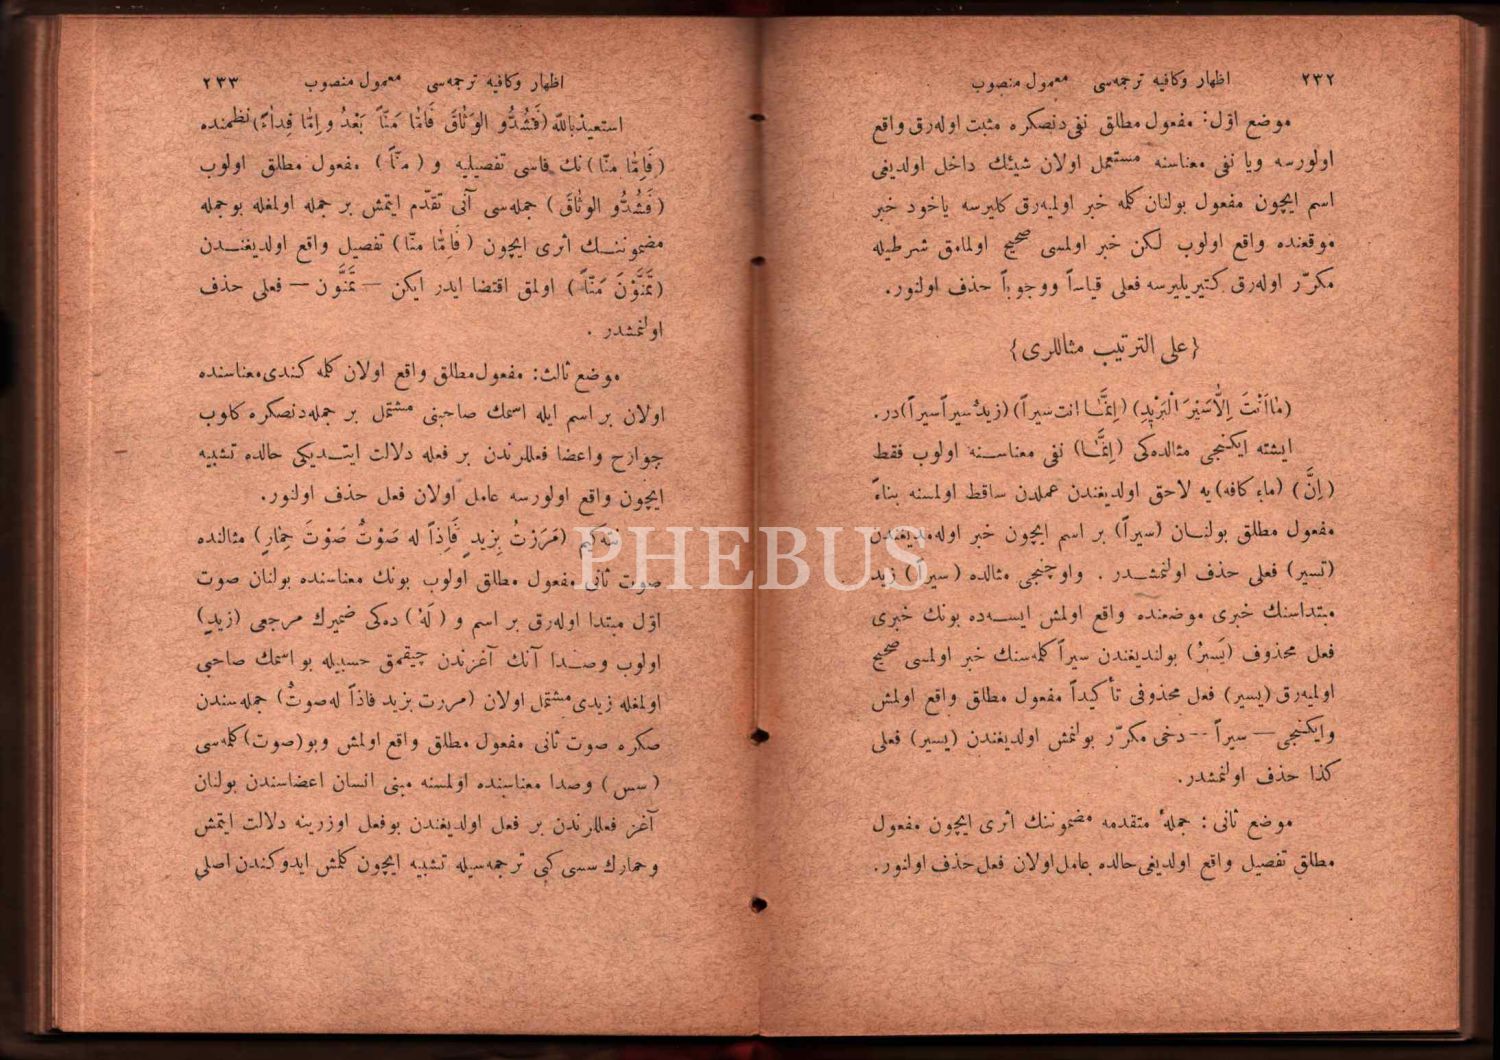 ٢٣٢ اظهار وكافيه ترجمه‌سى معمول منصوب
موضع اوّل: مفعول مطلق نفى‌دنصكره مثبت اوله‌رق واقع
اولورسه ويا نفى معناسنه مستعمل اولان شيئك داخل اولديغى
اسم ايچون مفعول بولنان كلمه خبر اولميه‌رق كليرسه ياخود خبر
موقعنده واقع اولوب لكن خبر اولمسى صحيح اولمامق شرطيله
مكرّر اوله‌رق كتيريليرسه فعلى قياساً ووجوباً حذف اولنور.
{على الترتيب مثاللرى}
(مٰااَنْتَ اِلّٰاسَيْرَ الْبَرْيٖدِ) (اِنَّمٰـا انت سيراً) (زيدٌ سيراً سيراً) در.
ايشته ايكنجى مثالده‌كى (اِنَّمٰـا) نفى معناسـنه اولوب فقط
(اِنَّ) (ماء كافه)يه لاحق اولديغندن عملدن ساقط اولمسنه بناءً
مفعول مطلق بولنـان (سيراً) بر اسم ايچون خبر اوله‌مديغندن
(تسير) فعلى حذف اولنمشـدر . واوچنجى مثالده (سيراً) زيد
مبتداسنك خبرى موضعنده واقع اولمش ايسـه‌ده بونك خبرى
فعل محذوف (يَسيرُ) بولنديغندن سيراً كلمه‌سنك خبر اولمسى صحيح
اولميه‌رق (يسير) فعل محذوفى تأكيداً مفعول مطلق واقع اولمش
وايكنجى— سيراً — دخى مكرّر بولنمش اولديغندن (يسير) فعلى
كذا حذف اولنمشدر.
موضع ثانى: جملۀ متقدمه مضموننك اثرى ايچون مفعول
مطلق تفصيل واقع اولديغى حالده عامل اولان فعل حذف اولنور.
اظهار وكافيه ترجمه‌سى معمول منصوب ٢٣٣
استعيذبالله (فَشُدُّو الوَثٰاقَ فَامّٰا مَنّاً بَعْدُ وامّٰا فِداٰءً) نظمنده
(فَاِمّٰا منّا) نك فاسى تفصيليه و (منّاً) مفعول مطلق اولوب
(فَشُدُّو الوثٰاقَ) جمله‌سى آنى تقدّم ايتمش بر جمله اولمغله بوجمله
مضموننـك اثرى ايچون (فَاِمّٰا منّا) تفصيل واقع اولديغنـدن
(تَمَنَّوْنَ مَنّاً) اولمق اقتضا ايدر ايكن — تَمَنَّون — فعلى حذف
اولنمشدر .
موضع ثالث: مفعول‌مطلق واقع اولان كلمه كندى‌معناسنده
اولان بر اسم ايله اسمك صاحبنى مشتمل بر جمله‌دنصكره كلوب
جوارح واعضا فعللرندن بر فعله دلالت ايتـديكى حالده تشبيه
ايچون واقع اولورسه عامل اولان فعل حذف اولنور.
نته‌كيم (مَرَرْتُ بِزيدٍ فَاِذاً له صَوْتٌ صَوْتَ حِمٰارٍ) مثالنده
صوت ثانى مفعول مطلق اولوب بونك معناسنده بولنان صوت
اوّل مبتدا اوله‌رق بر اسم و (لَهُ) ده‌كى ضميرك مرجعى (زيدٍ)
اولوب وصـدا آنك آغزندن چيقمق حسبيله بو اسمك صاحبى
اولمغله زيدى مشتمل اولان (مررت بزيد فاذاً له‌صوتٌ) جمله‌سندن
صكره صوت ثانى مفعول مطلق واقع اولمش وبو(صوت)كلمه‌سى
(سس) وصدا معناسنده اولمسنه مبنى انسان اعضاسندن بولنان
آغز فعللرندن بر فعل اولديغندن بوفعل اوزرينه دلالت ايتمش
وحمارك سسى كبى ترجمه‌سيله تشبيه ايچون كلمش ايدوكندن اصلى
PHEBUS